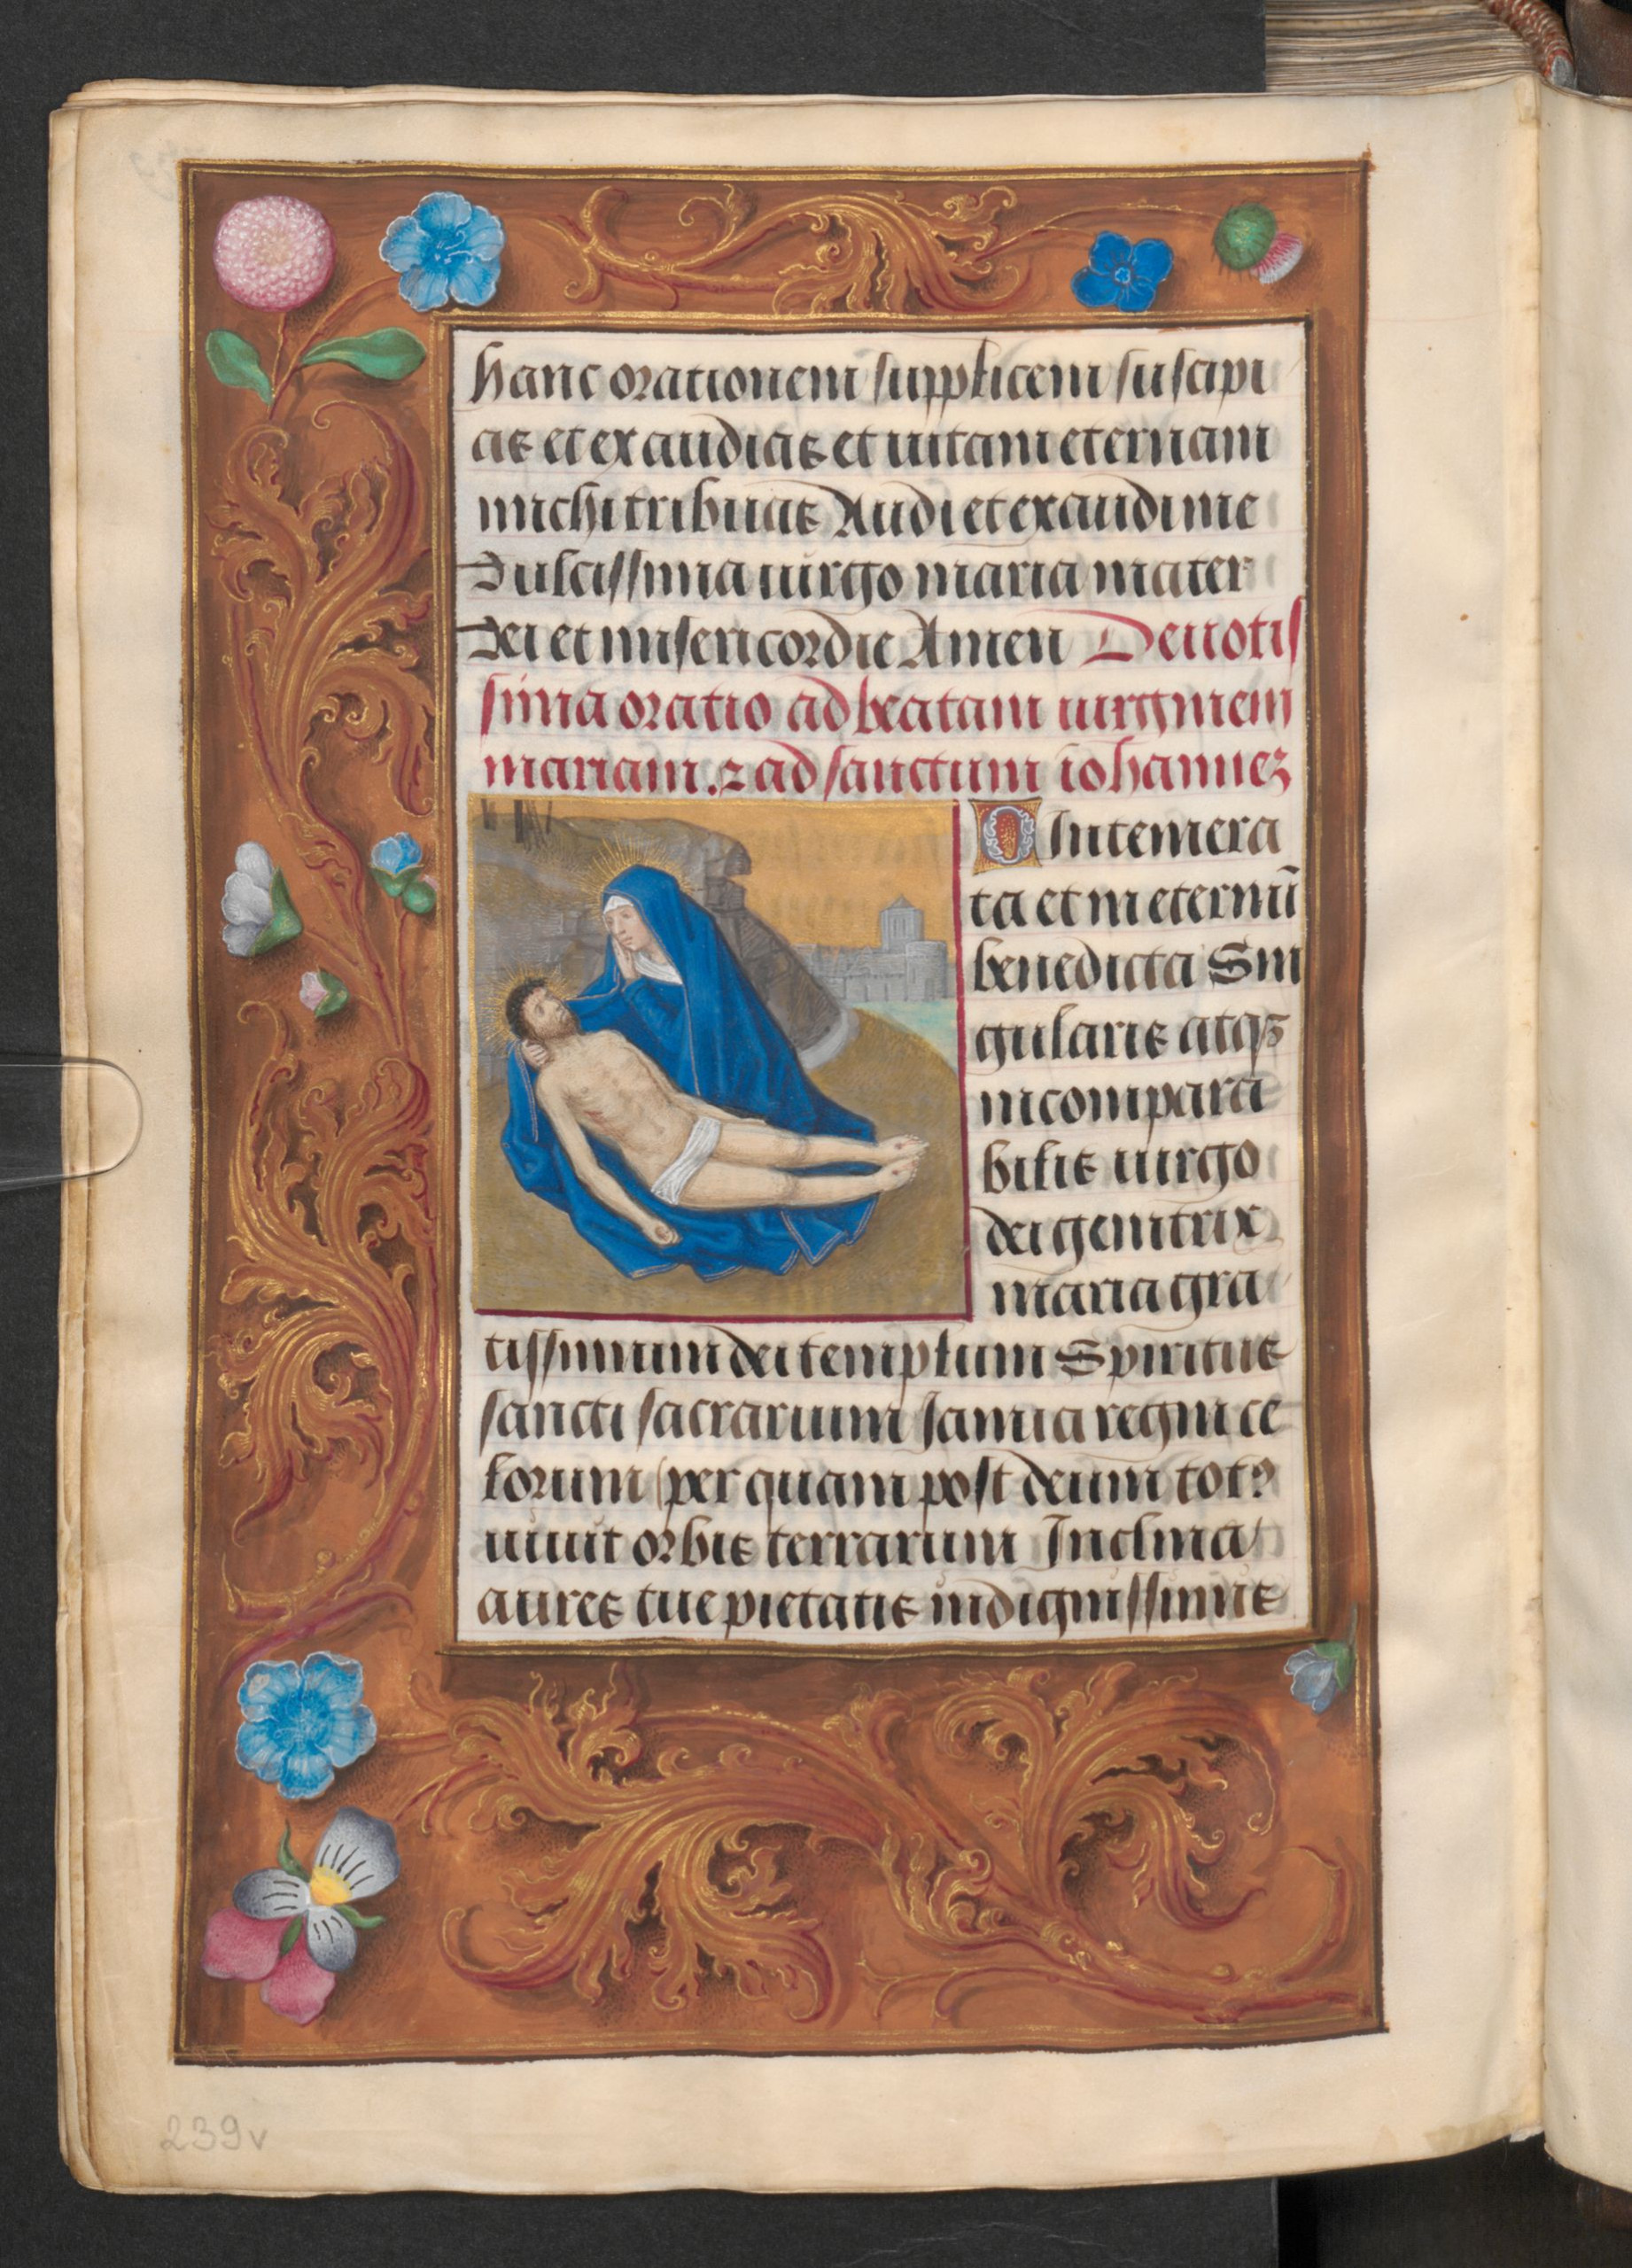 hanc orationem supplicem suscipi
as et exaudias et uitam eternam
michi tribuas Audi et exaudi me
Dulcissima uirgo maria mater
Dei et misericordie Amen Deuotis
sima oratio ad beatam uirginem
mariam. ⁊ ad sanctum iohannez
O Intemera
ta et in eternũ
benedicta Sin
gularis atqꝫ
incompara
bilis uirgo
dei genitrix
maria gra
tissimum dei templum Spiritus
sancti sacrarium Ianua regni ce
lorum per quam post deum totꝰ
uiuit orbis terrarum Inclina
aures tue pietatis indignissimis
239v